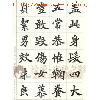 蓋此身髮四大
五常恭惟鞠養
豈敢毀傷女慕
貞絜男效才良